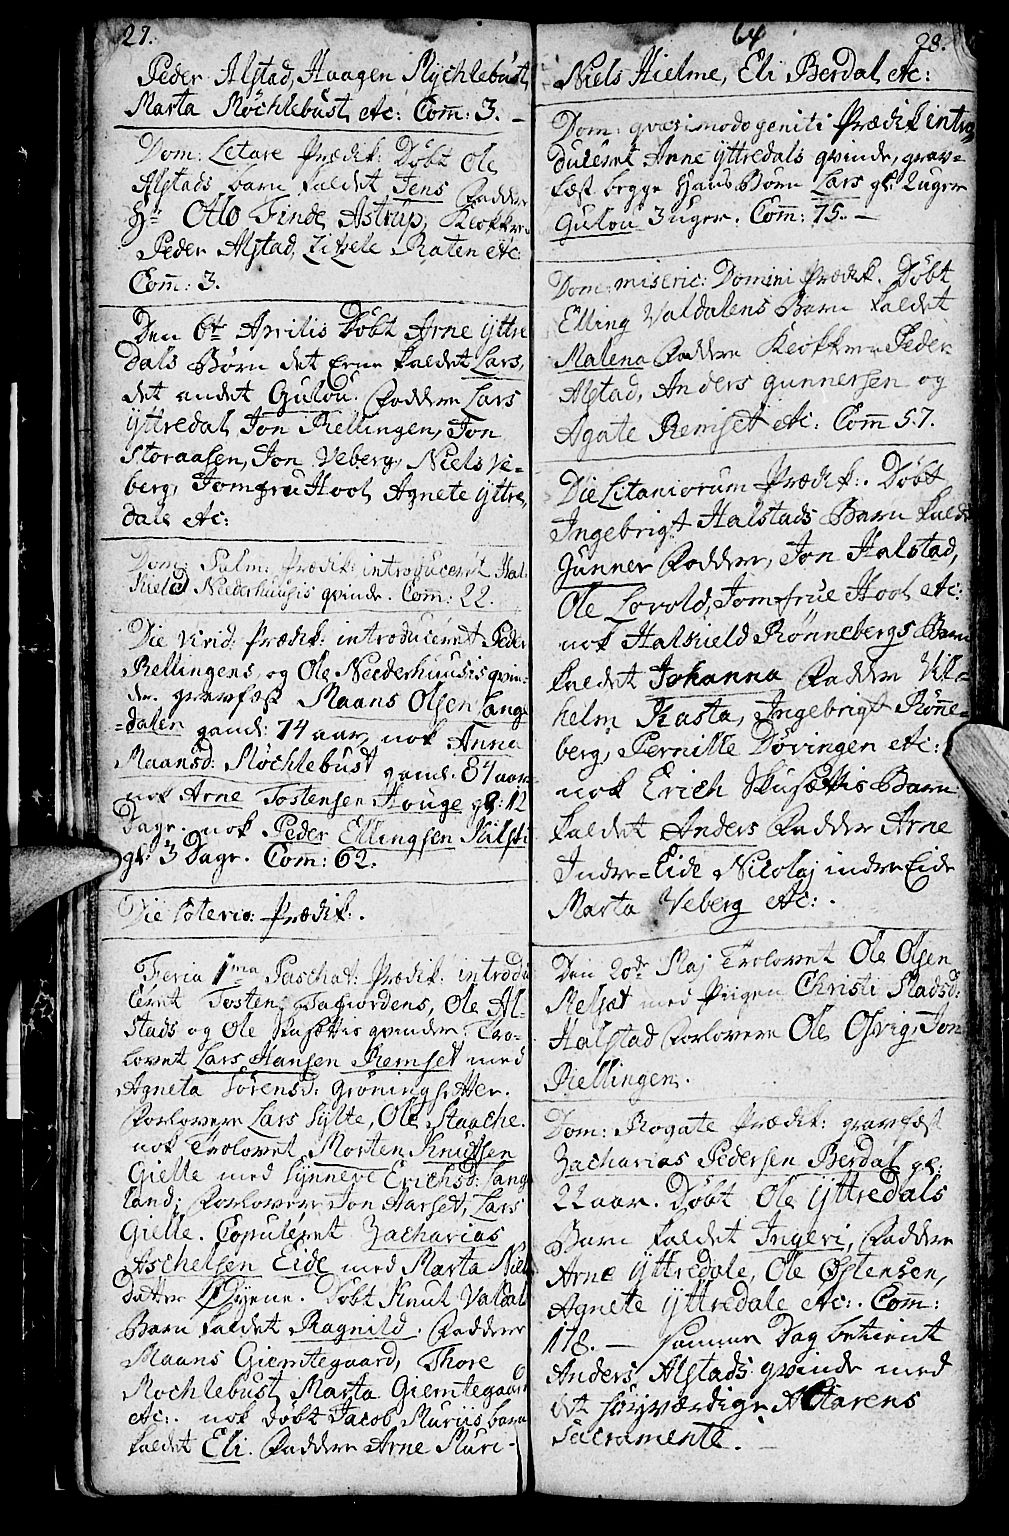 27.
Peder Alstad, Haagen Møchlebust,
Marta Møchlebust etc: Com̄: 3. –
Dom: Letare Prædik: Døbt Ole
Alstads barn kaldet Jens Faddre
Hr Otto Finde Astrup, Klokkeren
Peder Alstad, Zizele Raten etc:
Com̄: 3.
Den 6te Aprilis Døbt Arne Yttre
dals Børn det Eene kaldet Lars,
det andet Gulou. Faddre Lars
Yttredal, Jon Rellingen, Jon
Storaasen, Jon Veberg, Niels Ve-
berg, Jomfru Hoel, Agnete Yttre
dale etc:
Dom: Palm: Prædik: introduceret Hal-
kield Nederhuusis qvinde. Com: 22.
Die Virid: Prædik: introduceret Peder
Rellingens, og Ole Nederhuusis qvin-
der. gravfæst Maans Olsen Lang-
=dalen gaml: 74 aar, nok Anne
Maansd: Møchlebust gaml. 84 aar
nok Arne Tostensen Houge gl: 12
Dage. nok Peder Ellingsen
gl: 3 Dage. Com: 62.
Die Coteriæ: Prædik: .
Feria 1ma Paschat: Prædik: introdu
ceret Tosten Tafiordens, Ole Al-
stads og Ole Skusettis qvinder. Tro-
lovet Lars Hansen Remset med
Agneta Sørensd: Grøningsetter.
Forlovere Lars Sylte, Ole Staache.
nok Trolovet Morten Knudsen
Gielle med Synneve Erichsd: Lang
land; Forlovere Jon Aarset, Lars
Gielle. Copuleret Zacharias
Aschelsen Eide med Marta Niels
Datter Øyene. Døbt Knut Valdal
Barn kaldet Ragnild. Faddere
Maans Giemtegaard, Thore
Mochlebust, Marta Giemtegaard
etc:. nok Døbt Jacob Muriis barn
kaldet Eli. Faddere Arne Muri-
64
28.
Niels Hielme, Eli Berdal, etc:
Dom: qvasimodogeniti Prædik intro-
duceret Arne Yttredals qvinde, grav-
fæst begge Hans Børn Lars gl: 2 uger
Gulou 3 uger. Com: 75. –
Dom: miseric: Domini Prædik. Døbt
Elling Valdalens Barn kaldet
Malena Faddere Klokkeren Peder
Alstad, Anders Gunnersen og
Agate Remset etc: Com̄ 57.
Die Litaniorum Prædik:. Døbt
Ingebrigt Halstads Barn kaldt
Gunner Faddere, Jon Halstad,
Ole Lovold, Jomfrue Hoel etc:
nok Halkield Rønnebergs Barn
kaldet Johanna Faddre Vil-
helm Kasta, Ingebrigt Røn̄e-
berg, Pernille Døvingen etc:
nok Erich Skusettis Barn
kaldet Anders Faddere Arne
Indre=Eide Nicolaj indre Eide
Marta Veberg etc: .
Den 20de Maj Trolovet Ole Olsen
Relset med Piigen Christi Madsd:
Halstad Forlovere Ole Osvig, Jon
Rellingen.
Dom: Rogate Prædik: gravfæst
Zacharias Pedersen Berdal gl:
22 aar. Døbt Ole Yttredals
Barn kaldet Ingeri, Faddere
Arne Yttredale, Ole Østensen,
Agnete Yttredale etc:. Com̄:
178. – samme Dag betient
Anders Alstads qvinde med
det høyværdige Altarens
Sacramente. –